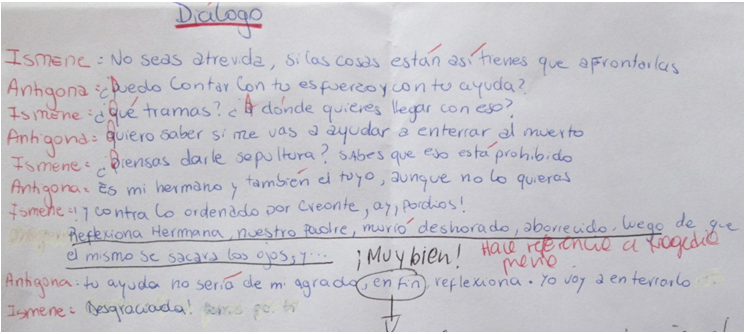 Diálogo
Ismene: No seas atrevida, si las cosas están así tienes que afrontarlas
Antigona: ¿Puedo Contar Con tu esfuerzo y con tu ayuda?
Ismene: ¿Qué tramas? ¿A dónde quieres llegar con eso?
Antigona: Quiero saber si me vas a ayudar a enterrar al muerto
Ismene: ¿Piensas darle sepultura? sabes que eso está prohibido
Antigona: Es mi hermano y también el tuyo, aunque no lo quieras
Ismene: ¡! y contra lo ordenado por Creonte, ay, por dios!
Reflexiona Hermana, nuestro Padre, murió deshorado, aborrecido. luego de que
el mismo se sacara los ojos, y...
¡Muy bien!
Hace referencia a tragedia
previa
Antigona: tu ayuda no sería de mi agrado, en fin, reflexiona. Yo voy a enterrarlo
Ismene: Desgraciada!